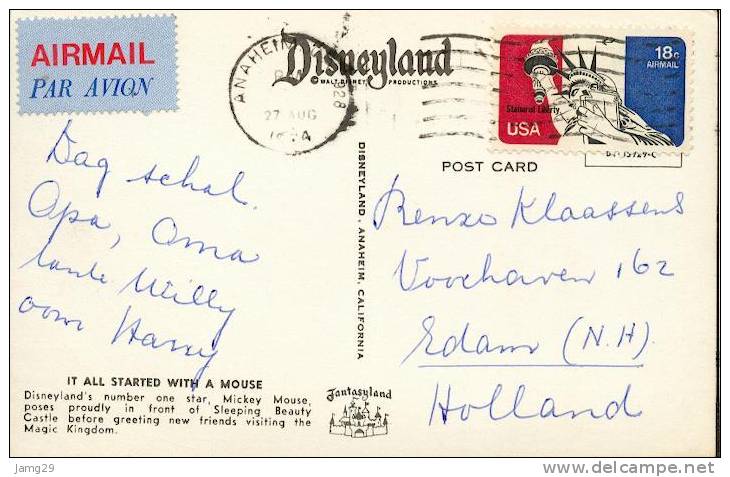 AIRMAIL
PAR AVION
ANAHEIM
928
27 AUG
Disneyland
© WALT DISNEY PRODUCTIONS
18c
AIRMAIL
Statue of Liberty
USA
POST CARD
DISNEYLAND, ANAHEIM, CALIFORNIA
Dag schat.
Opa, Oma
tante Willy
oom Harry
Renzo Klaassens
Voorhaven 162
Edam (N.H).
Holland
IT ALL STARTED WITH A MOUSE
Disneyland's number one star, Mickey Mouse,
poses proudly in front of Sleeping Beauty
Castle before greeting new friends visiting the
Magic Kingdom.
Fantasyland
Jamg29
www.delcampe.net